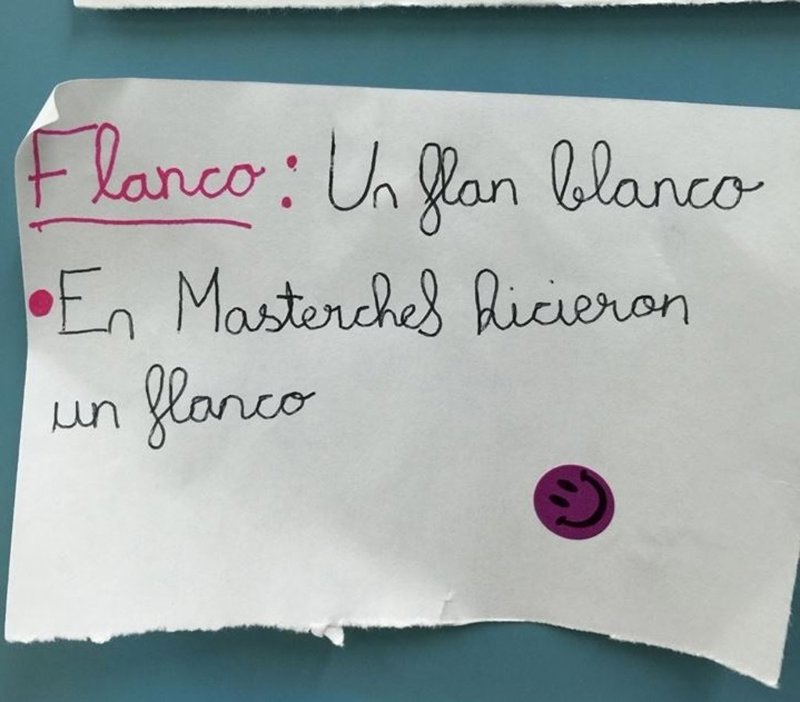 Flanco: Un flan blanco
•En Masterchef hicieron
un flanco